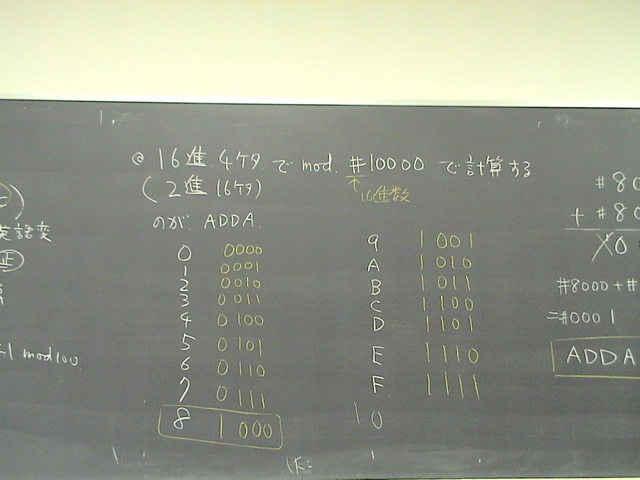 @ 16進 4ケタ で mod. #10000 で計算する
(2進 16ケタ)
↑16進数
のが ADDA.
0 0000
1 0001
2 0010
3 0011
4 0100
5 0101
6 0110
7 0111
8 1000
9 1001
A 1010
B 1011
C 1100
D 1101
E 1110
F 1111
10
英語変
正
=1 mod 100
#80
+ #80
#8000+#
=#0001
ADDA